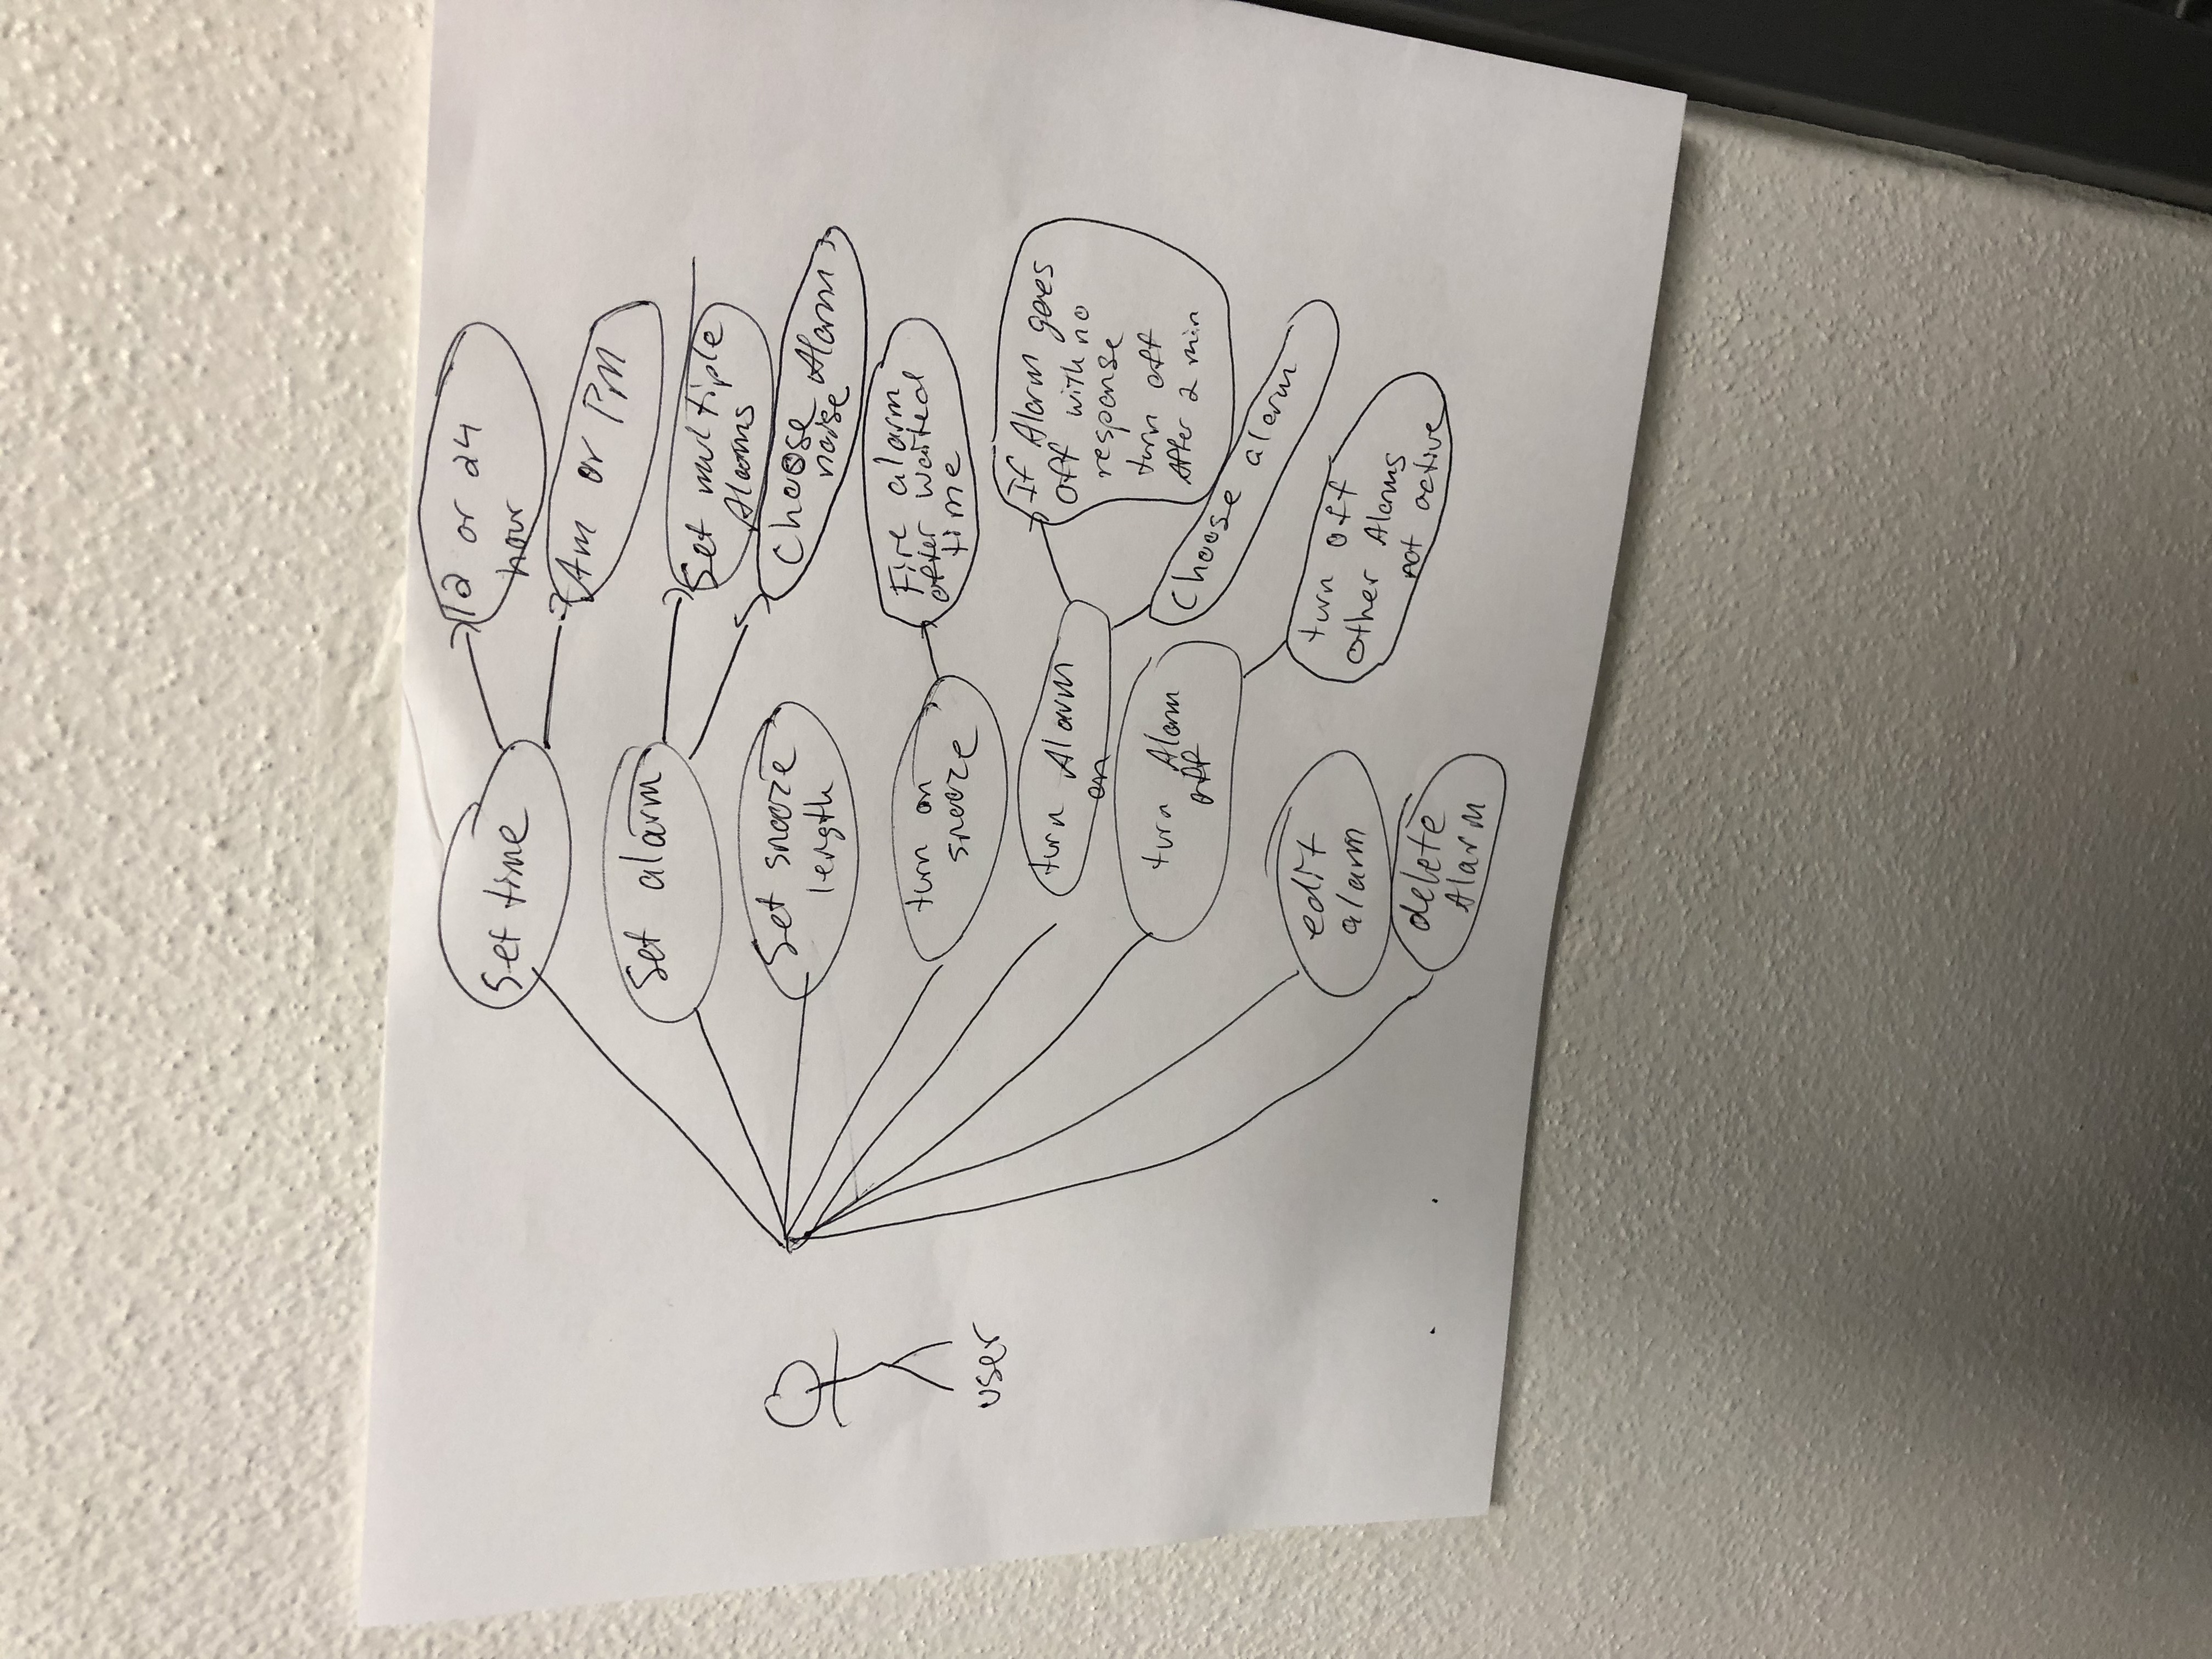 Set time
12 or 24
hour
Am or PM
Set alarm
Set multiple
Alarms
Choose Alarm
noise
Set snooze
length
turn on
snooze
Fire alarm
after waited
time
user
turn Alarm
on
If Alarm goes
off with no
response
turn off
After 2 min
turn Alarm
off
Choose
alarm
edit
alarm
turn off
other Alarms
not active
delete
Alarm